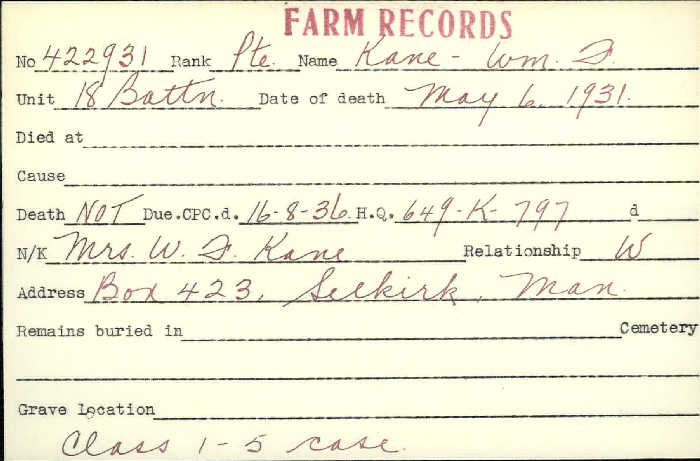 FARM RECORDS
No 422931 Rank Pte. Name Kane - Wm. F.
Unit 18 Battn. Date of death May 6, 1931.
Died at
Cause
Death NOT Due.CPC.d. 16-8-36 H.Q. 649-K-797 d
N/K Mrs. W. F. Kane Relationship W
Address Box 423, Selkirk, Man.
Remains buried in Cemetery
Grave location
Class 1-5 case.